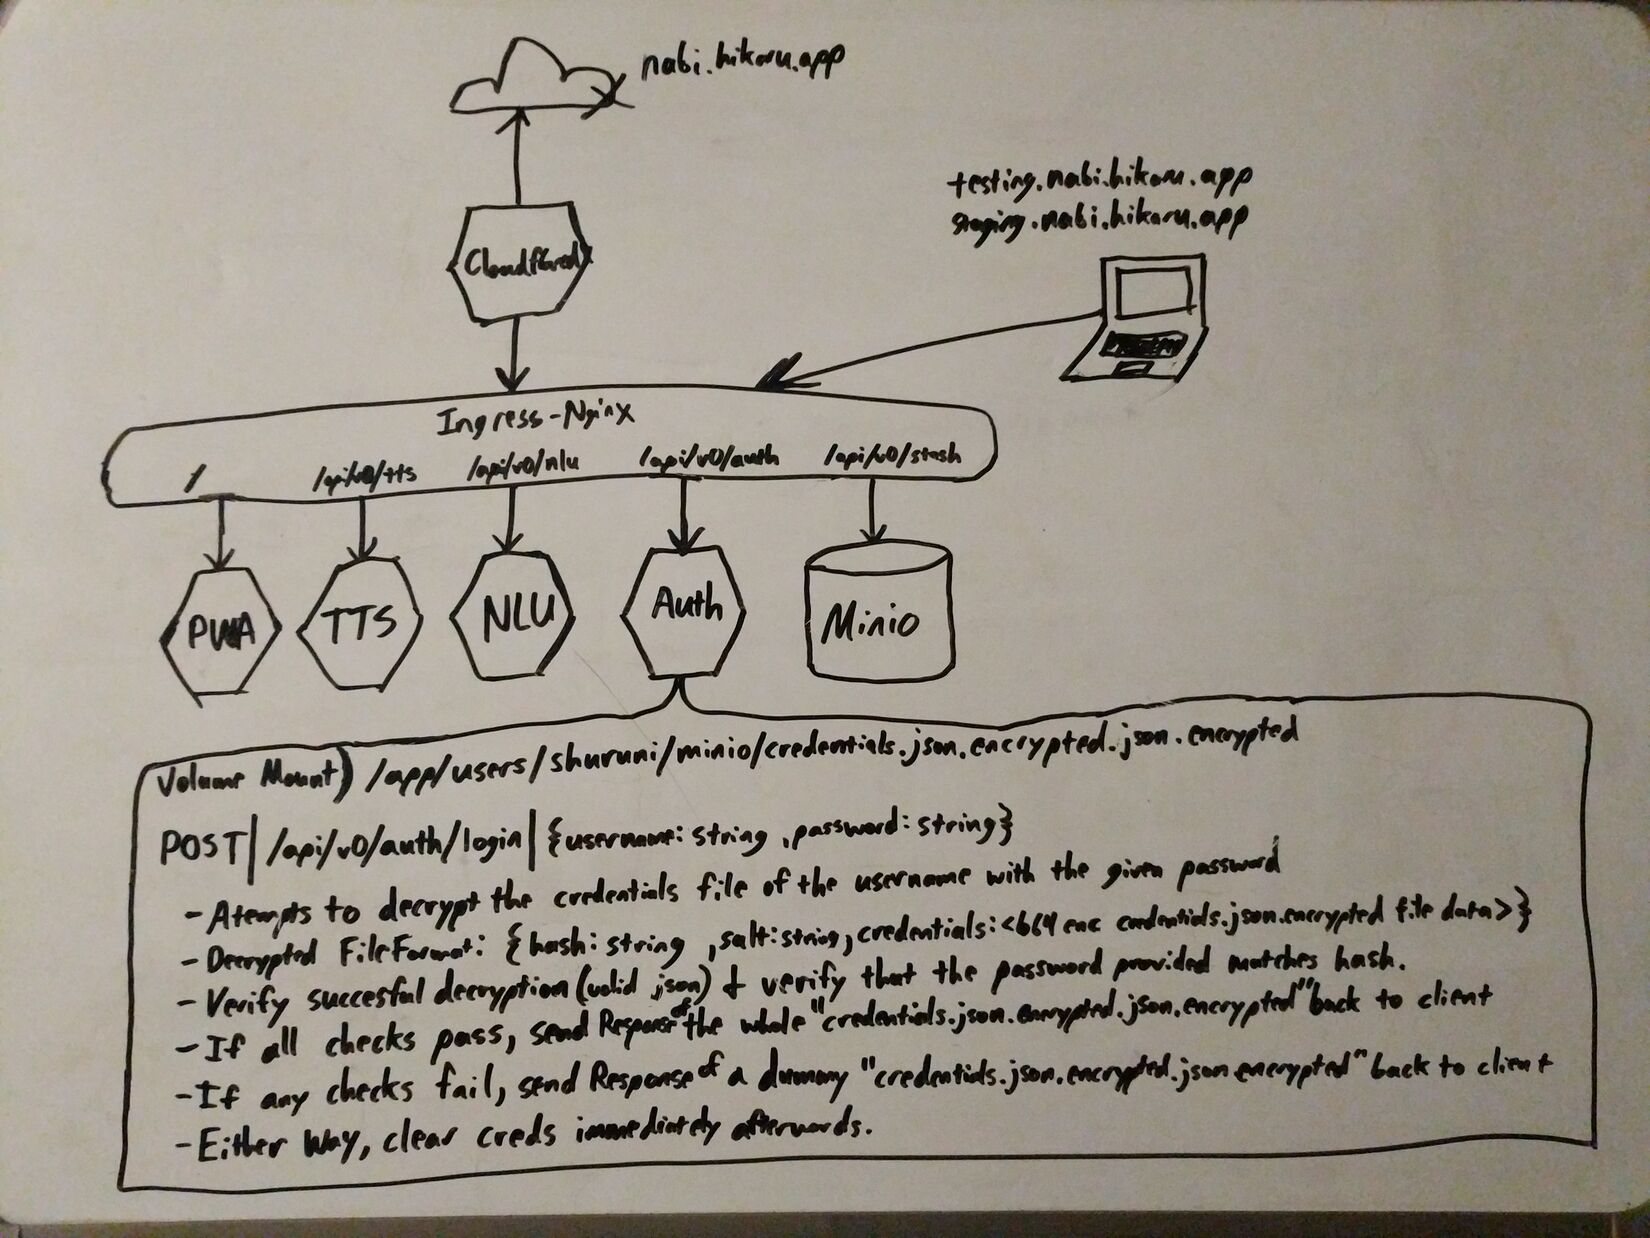 nabi.hikaru.app
testing.nabi.hikaru.app
staging.nabi.hikaru.app
Cloudflared
Ingress-Nginx
/ /api/v0/tts /api/v0/nlu /api/v0/auth /api/v0/stash
PWA TTS NLU Auth Minio
Volume Mount) /app/users/shuruni/minio/credentials.json.encrypted.json.encrypted
POST | /api/v0/auth/login | {username: string, password: string}
- Atempts to decrypt the credentials file of the username with the given password
- Decrypted File Format: {hash: string, salt: string, credentials: <b64 enc credentials.json.encrypted file data>}
- Verify succesful decryption (valid .json) & verify that the password provided matches hash.
- If all checks pass, send Response of the whole "credentials.json.encrypted.json.encrypted" back to client
- If any checks fail, send Response of a dummy "credentials.json.encrypted.json.encrypted" back to client
- Either Way, clear creds immediately afterwards.